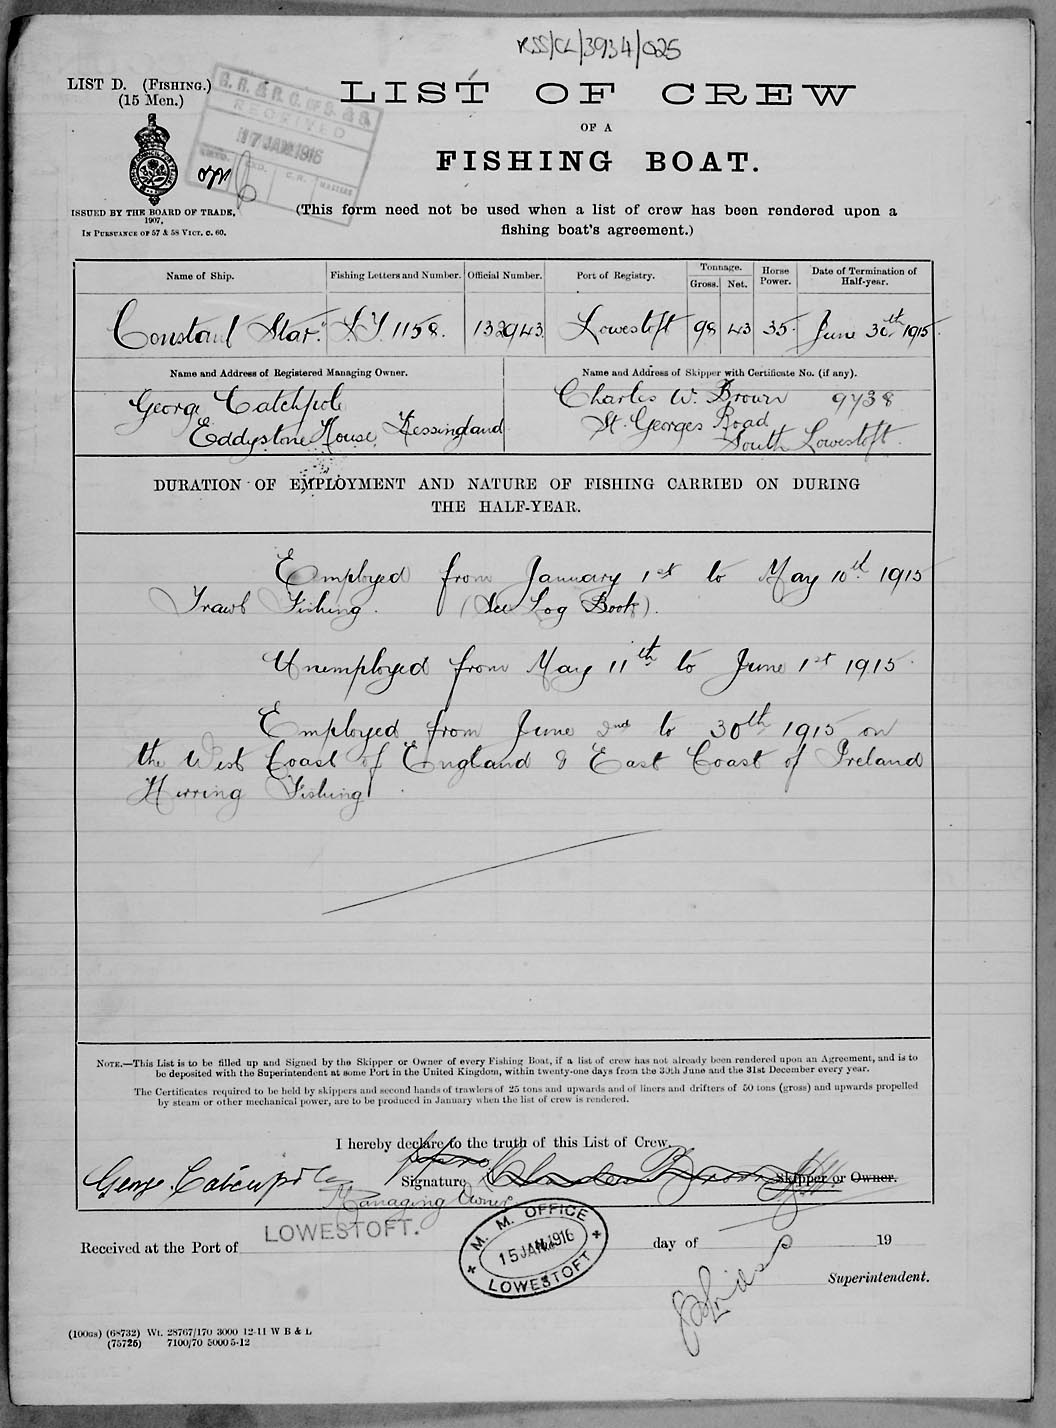 RSS/CL/3934/025
LIST D. (FISHING.)
(15 Men.)
G. R. & R. G. OF S. & S.
RECEIVED
17 JAN 1916
C.R.
MASTERS
ISSUED BY THE BOARD OF TRADE,
1907,
IN PURSUANCE OF 57 & 58 VICT. C. 60.
LIST OF CREW
OF A
FISHING BOAT.
(This form need not be used when a list of crew has been rendered upon a
fishing boat's agreement.)
Name of Ship. Fishing Letters and Number. Official Number. Port of Registry. Tonnage. Gross. Net. Horse Power. Date of Termination of Half-year.
"Constant Star." LT. 1158. 132943. Lowestoft 98 43 35. June 30th 1915.
Name and Address of Registered Managing Owner. Name and Address of Skipper with Certificate No. (if any).
George Catchpole Charles W. Brown 9738
Eddystone House, Kessingland St. Georges Road
South Lowestoft.
DURATION OF EMPLOYMENT AND NATURE OF FISHING CARRIED ON DURING
THE HALF-YEAR.
Employed from January 1st to May 10th 1915
Trawl Fishing. (See Log Book).
Unemployed from May 11th to June 1st 1915.
Employed from June 2nd to 30th 1915 on
the West Coast of England & East Coast of Ireland
Herring Fishing.
NOTE.—This List is to be filled up and Signed by the Skipper or Owner of every Fishing Boat, if a list of crew has not already been rendered upon an Agreement, and is to
be deposited with the Superintendent at some Port in the United Kingdom, within twenty-one days from the 30th June and the 31st December every year.
The Certificates required to be held by skippers and second hands of trawlers of 25 tons and upwards and of liners and drifters of 50 tons (gross) and upwards propelled
by steam or other mechanical power, are to be produced in January when the list of crew is rendered.
I hereby declare to the truth of this List of Crew.
George Catchpole Signature Charles Brown Skipper or Owner.
Managing Owner
Received at the Port of LOWESTOFT. day of 19
M. M. OFFICE
15 JAN 1916
LOWESTOFT
Superintendent.
(100GS) (68732) Wt. 28767/170 3000 12-11 W B & L
(75725) 7100/70 5000 5-12